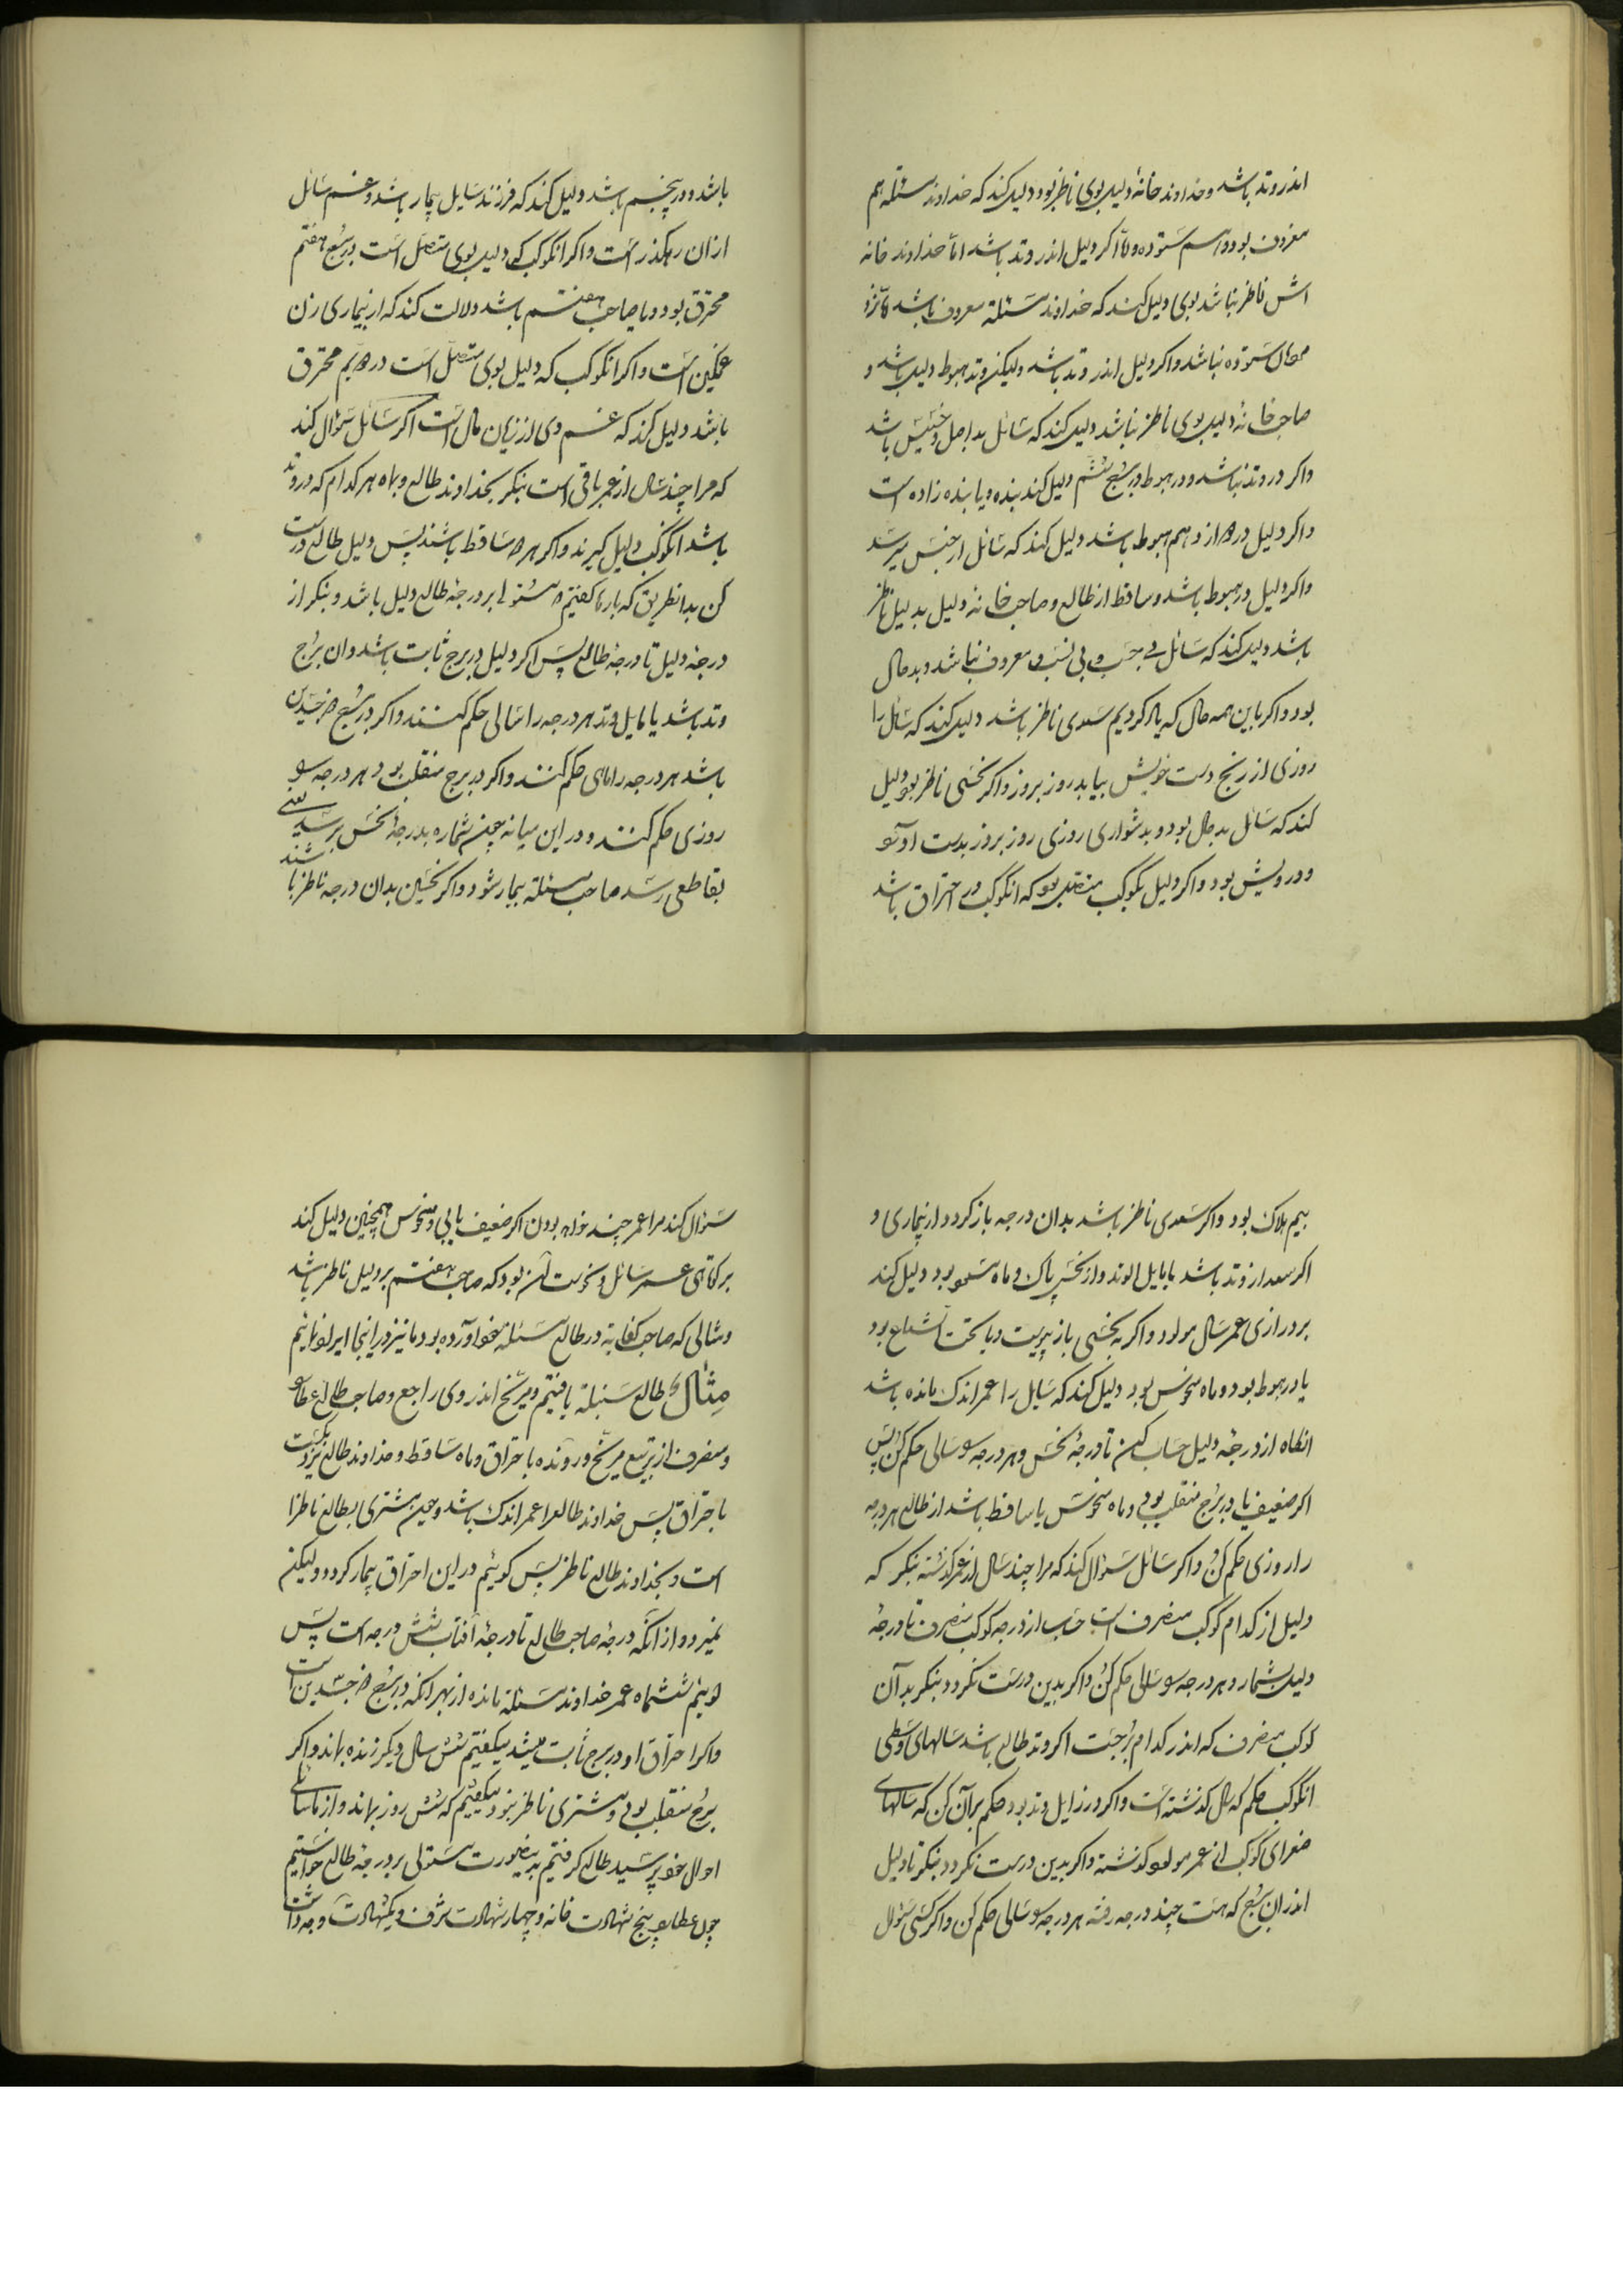 اندر وتد باشد و خداوند خانهٔ دلیل بوی ناظر بود دلیل کند که خداوند مسئله هم
معروف بود و اسم ستوده و اما اکر دلیل اندر وتد باشد اما خداوند خانه
اش ناظر نباشد بوی دلیل کند که خداوند مسئلة معروف باشد
ستوده نباشد و اکر دلیل اندر وتد باشد ولیکن وتد هبوط دلیل باشد و
صاحب خانهٔ دلیل بوی ناظر نباشد دلیل کند که سائل بد اصل و خسیس باشد
واکر در وتد نباشد و در هبوط و برج ششم دلیل کند بنده و یا بنده زاده است
واکر دلیل در دوازدهم هبوط باشد دلیل کند که سائل از حبس میرسد
واکر دلیل در هبوط باشد و ساقط از طالع و صاحب خانهٔ دلیل بدلیل ناظر
باشد دلیل کند که سائل بی حسب و بی نسب و معروف نباشد و بد حال
بود واکر با این همه حال که یاد کردیم سعدی ناظر باشد دلیل کند که سائل را
روزی از رنج دست خویش بیابد روز بروز واکر نحسی ناظر بود دلیل
کند که سائل بد حال بود و بدشواری روزی روز بروز بدست او آید
و درویش بود واکر دلیل بکوکب متصل بود که انکوکب در احتراق باشد
باشد و در پنجم باشد دلیل کند که فرزند سایل بیمار باشد و غم سائل
از ان رهکذر است واکر انکوکب که دلیل بوی متصل است در برج هفتم
محترق بود و یا صاحب هفتم باشد دلالت کند که از بیماری زن
غمکین است واکر انکوکب که دلیل بوی متصل است در دویم محترق
باشد دلیل کند که غم وی از زیان مال است اکر سائل سؤال کند
که مرا چند سال از عمر باقی است بنکر بخداوند طالع و بماه هر کدام که در وتد
باشد انکوکب دلیل کیرند واکر هر دو ساقط باشند پس دلیل طالع درست
کن بدانطریق که بارها کفتیم مستولی بر درجهٔ طالع دلیل باشد و بنکر از
درجهٔ دلیل تا درجهٔ طالع پس اکر دلیل در برج ثابت باشد و ان برج
وتد باشد یا مایل وتد هر درجه را سالی حکم کنند واکر در برج ذو جسدین
باشد هر درجه را ماهی حکم کنند واکر در برج منقلب بود هر درجه سو
روزی حکم کنند و در این میانه چون شماره بدرجهٔ نحس برسد یعنی
بقاطعی رسد صاحب مسئلة بیمار شود واکر نحسین بدان درجه ناظر باشند
بیم هلاک بود واکر سعدی ناظر باشد بدان درجه باز کردد از بیماری و
اکر سعد از وتد باشد یا مایل الوتد و از نحس پاک و ماه مسعود بود دلیل کند
بر درازی عمر سال مولود واکر به نحسی باز پیوست و یا تحت الشعاع بود
یا در هبوط بود و ماه منحوس بود دلیل کند که سایل را عمر اندک مانده باشد
انکاه از درجهٔ دلیل حساب کن تا درجهٔ نحس و هر درجه سو سالی حکم کن پس
اکر ضعیف یا در برج منقلب بود و ماه منحوس یا ساقط باشد از طالع هر درجه
را روزی حکم کن واکر سائل سؤال کند که مرا چند سال از عمر کذشته بنکر که
دلیل از کدام کوکب منصرف است حساب از درجه کوکب منصرف تا درجهٔ
دلیل بشمار و هر درجه سو سالی حکم کن واکر بدین درست نکردد بنکر بدآن
کوکب منصرف که اندر کدام برجست اکر وتد طالع باشد سالهای وسطی
انکوکب حکم که سال کذشته است واکر در زایل وتد بود حکم بر آن کن که سالهای
صغرای کوکب از عمر مولود کذشته واکر بدین درست نکردد بنکر تا دلیل
اندر ان برج که هست چند درجه رفته هر درجه سو سالی حکم کن واکر کسی سؤال
سؤال کند مرا عمر چند خواهد بودن اکر ضعیف یابی و منحوس همچنین دلیل کند
بر کوتاهی عمر سائل و نحوست آن بود که صاحب هفتم بر دلیل ناظر باشد
و مثالی که صاحب کفایة در طالع مسئلة خود آورده بود ما نیز در اینجا ایراد نمائیم
مثال طالع سنبلة یافتیم و مریخ اندر وی راجع و صاحب طالع عطارد
و منصرف از تربیع مریخ و رونده باحتراق و ماه ساقط و خداوند طالع نزدیکست
باحتراق پس خداوند طالع را عمر اندک باشد و چون مشتری بطالع ناظر
است و بخداوند طالع ناظر پس کوئیم در این احتراق بیمار کردد ولیکن
نمیرد و از آنکه درجهٔ صاحب طالع تا درجهٔ آفتاب شش درجه است پس
کوئیم ششماه عمر خداوند مسئلة مانده از بهر آنکه در برج ذو جسدین است
واکر احتراق او در برج ثابت میشد میکفتیم شش سال دیکر زنده بماند واکر
برج منقلب بودی و مشتری ناظر نبود میکفتیم که شش روز بماند و از ما سائلی
احوال خود پرسید طالع کرفتیم بدینصورت مستولی بر درجهٔ طالع خواستیم
چون عطارد پنج شهادت خانه و چهار شهادت شرف و یک شهادت وجه داشت